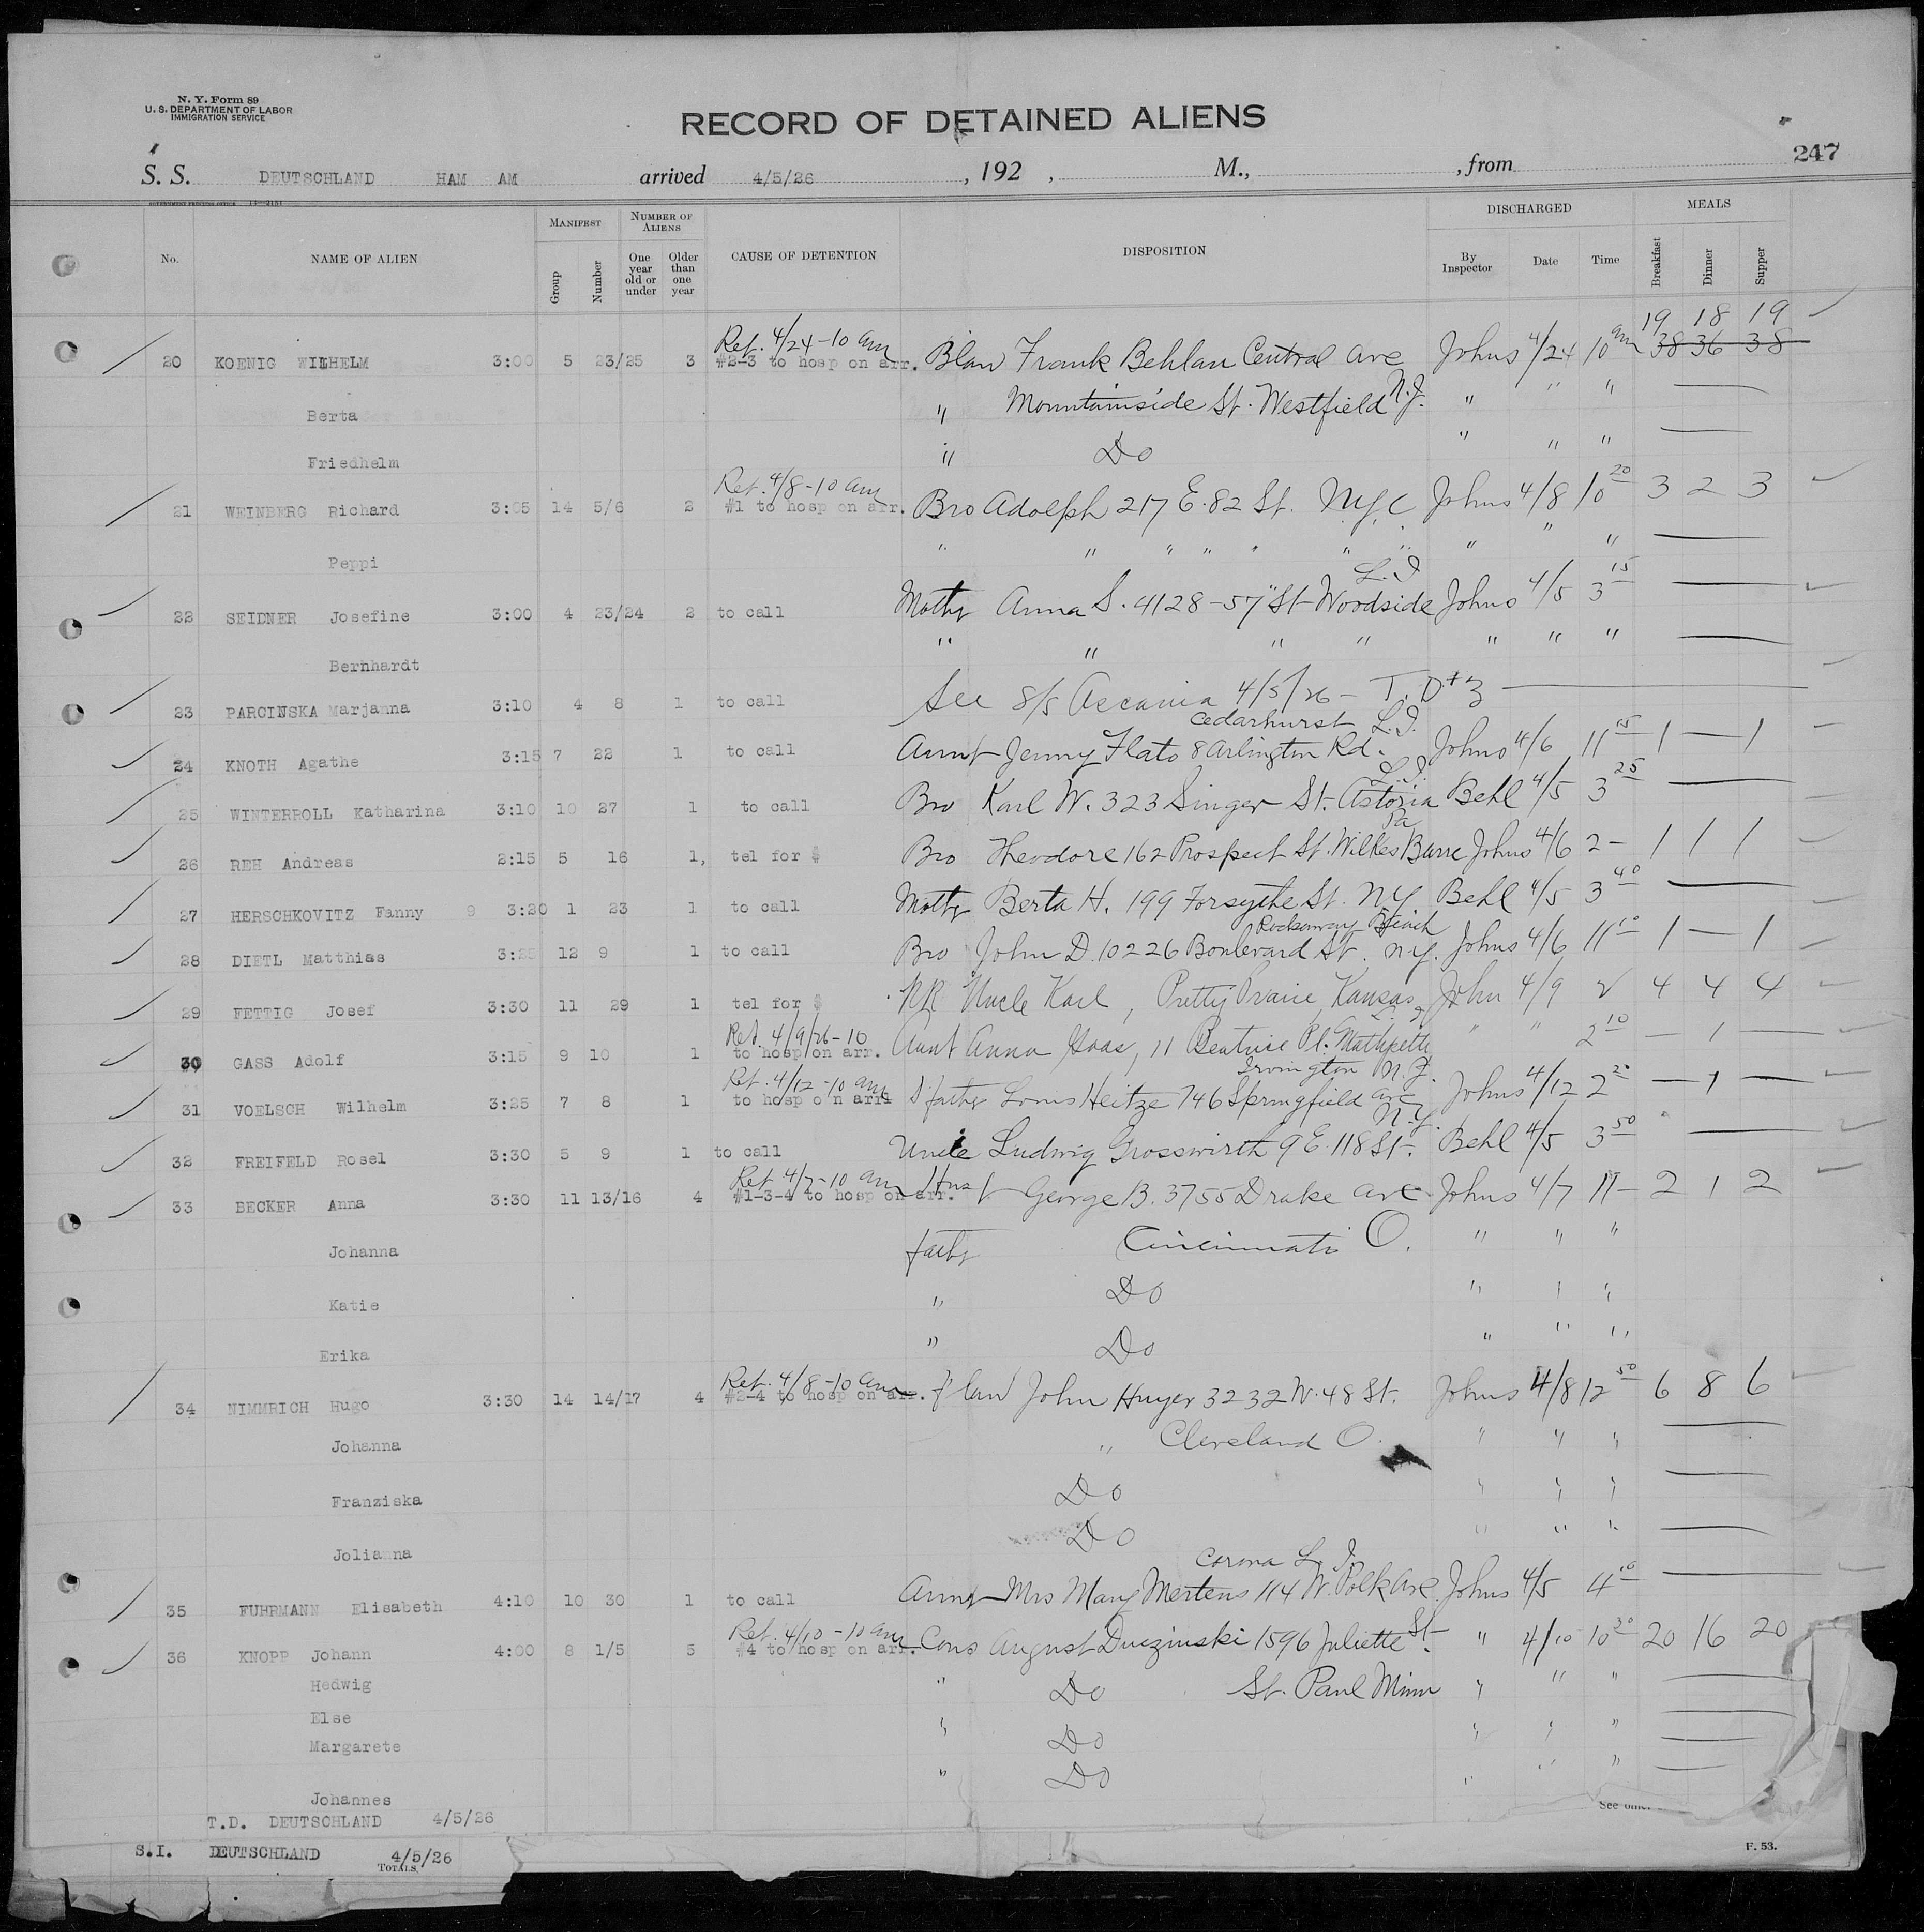 N. Y. Form 89
U. S. DEPARTMENT OF LABOR
IMMIGRATION SERVICE
RECORD OF DETAINED ALIENS
247
S. S. DEUTSCHLAND HAM AM arrived 4/5/26 , 192 , M., , from
GOVERNMENT PRINTING OFFICE 11—2151
No. NAME OF ALIEN MANIFEST Group Number NUMBER OF ALIENS One year old or under Older than one year CAUSE OF DETENTION DISPOSITION DISCHARGED By Inspector Date Time MEALS Breakfast Dinner Supper
19 18 19
Ret. 4/24-10 am
20 KOENIG WILHELM 3:00 5 23/25 3 #2-3 to hosp on arr. Blaw Frank Behlan Central Ave Johns 4/24 10 am 38 36 38
Berta " Mountainside St. Westfield N.J. " " "
Friedhelm " Do " " "
Ret. 4/8-10 am
21 WEINBERG Richard 3:05 14 5/6 2 #1 to hosp on arr. Bro Adolph 217 E. 82 St. NYC Johns 4/8 10 20 3 2 3
Peppi " " " " " " " " " "
L.I.
22 SEIDNER Josefine 3:00 4 23/24 2 to call Mothr Anna S. 4128-57" St Woodside Johns 4/5 3 15
Bernhardt " " " " " " "
23 PARCINSKA Marjanna 3:10 4 8 1 to call See S/S Ascania 4/5/26 - T.D. # 3
Cedarhurst L.I.
24 KNOTH Agathe 3:15 7 22 1 to call Aunt Jenny Flato 8 Arlington Rd. Johns 4/6 11 15 1 — 1
L.I.
25 WINTERROLL Katharina 3:10 10 27 1 to call Bro Karl W. 323 Singer St. Astoria Behl 4/5 3 25
Pa
26 REH Andreas 2:15 5 16 1, tel for $ Bro Theodore 162 Prospect St. Wilkes Barre Johns 4/6 2 — 1 1 1
27 HERSCHKOVITZ Fanny 9 3:20 1 23 1 to call Mothr Berta H. 199 Forsythe St. NY Behl 4/5 3 40
Rockaway Beach
28 DIETL Matthias 3:25 12 9 1 to call Bro John D. 10226 Boulevard St. N.Y. Johns 4/6 11 10 1 — 1
29 FETTIG Josef 3:30 11 29 1 tel for $ RR Uncle Karl, Pretty Prairie, Kansas John 4/9 4 4 4
Ret. 4/9/26-10
30 GASS Adolf 3:15 9 10 1 to hosp on arr. Aunt Anna Gass, 11 Beatrice Pl. " " 2 10 — 1 —
Ret. 4/12-10 am Irvington N.J.
31 VOELSCH Wilhelm 3:25 7 8 1 to hosp on arr. S'fathr Louis Heitze 746 Springfield Ave Johns 4/12 2 20 — 1 —
N.Y.
32 FREIFELD Rosel 3:30 5 9 1 to call Uncle Ludwig Grosswirth 9 E. 118 St. Behl 4/5 3 50
Ret 4/7-10 am
33 BECKER Anna 3:30 11 13/16 4 #1-3-4 to hosp on arr. Hus George B. 3755 Drake Ave Johns 4/7 11 — 2 1 2
Johanna fathr Cincinnati O. " " "
Katie " Do " " "
Erika " Do " " "
Ret. 4/8-10 am
34 NIMMRICH Hugo 3:30 14 14/17 4 #2-4 to hosp on arr. f law John Huyer 3232 W. 48 St. Johns 4/8 12 50 6 8 6
Johanna " Cleveland O. " " "
Franziska Do " " "
Jolianna Do " " "
Corona L.I.
35 FUHRMANN Elisabeth 4:10 10 30 1 to call Aunt Mrs Mary Mertens 114 W. Polk Ave. Johns 4/5 4 10
Ret. 4/10-10 am
36 KNOPP Johann 4:00 8 1/5 5 #4 to hosp on arr. Cons August Duczinski 1596 Juliette St. " 4/10 10 30 20 16 20
Hedwig " Do St. Paul Minn " " "
Else
Margarete " Do " " "
Johannes " Do " " "
T.D. DEUTSCHLAND 4/5/26
See other
S.I. DEUTSCHLAND 4/5/26
TOTALS,
F. 53.